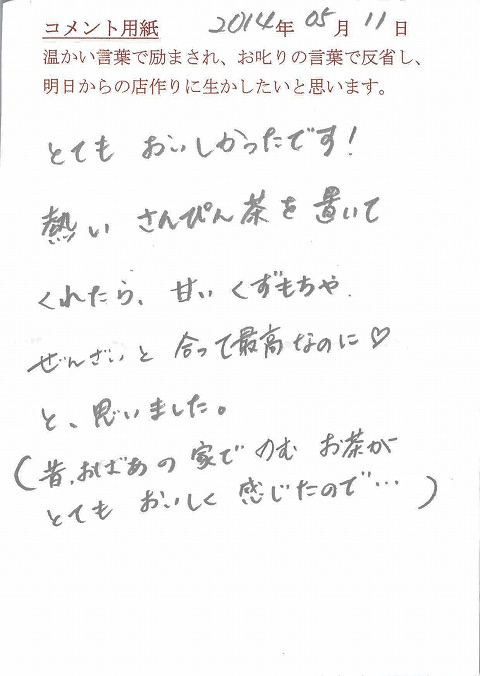 コメント用紙 2014年 05月 11日
温かい言葉で励まされ、お叱りの言葉で反省し、
明日からの店作りに生かしたいと思います。
とても おいしかったです!
熱い さんぴん茶を置いて
くれたら、甘い くずもちや
ぜんざいと 合って最高なのに♡
と、思いました。
(昔、おばあの家でのむ お茶が
とても おいしく 感じたので…)